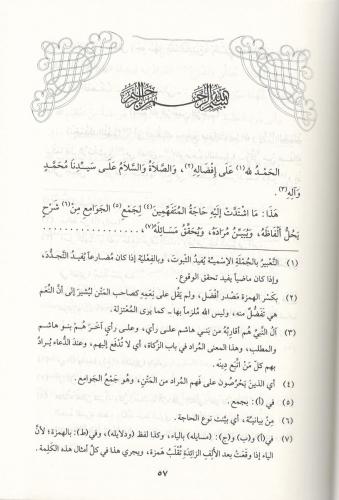 بسم الله الرحمن الرحيم
الحَمْدُ لله(١) عَلَى إِفْضَالِهِ(٢)، وَالصَّلاَةُ وَالسَّلاَمُ عَلَى سَيِّدِنَا مُحَمَّدٍ
وَآلِهِ(٣).
هَذَا: مَا اشْتَدَّتْ إِلَيْهِ حَاجَةُ المُتَفَهِّمِينَ(٤) لِجَمْعِ(٥) الجَوَامِعِ مِنْ(٦) شَرْحٍ
يَحُلُّ أَلْفَاظَهُ، وَيُبَيِّنُ مُرَادَهُ، وَيُحَقِّقُ مَسَائِلَهُ(٧)....................
(١) التَّعْبِيرُ بالجُمْلَةِ الإِسْمِيَّةِ يُفِيدُ الثُبوتَ، وبالفِعْلِيَّةِ إِذَا كان مُضارعاً يُفِيدُ التَّجدُّدَ،
وإذا كان ماضياً يفيد تحقق الوقوع.
(٢) بكَسْرِ الهمزة مَصْدَر أفْضَل، ولم يَقُل على نِعَمِه كصاحب المَتْن لِيُشيرَ إلى أنَّ النِّعَم
هي تَفَضُّل منه، وليس الله مُلزماً بها. كما يرى المُعْتزلة.
(٣) آلُ النَّبيِّ هُم أقَارِبُه من بَني هاشم على رأي، وعلى رأي آخر هُم بنو هاشم
والمطلب، وهذا المعنى المُراد في باب الزَّكاة، أي لا تُدفَع إليهم، وعند الدُّعاء يُرادُ
بهم كلُّ مَنْ اتَّبع دِينَه.
(٤) أي الذينَ يَحْرُصُون على فَهم المُراد من المَتْنِ، وهو جَمْعُ الجَوامِع.
(٥) في (أ): بجمع.
(٦) مِن بيانيّة، أي بيَّنت نوع الحاجة.
(٧) في (أ) و(ب) و(ج): (مسايله) بالياء، وكذا لفظ (ودلايله)، وفي(ط): بالهمزة؛ لأنَّ
الياءَ إذا وقعتْ بعد الألِفِ الزَّائِدَةِ تُقْلَبُ هَمزة، ويجري هذا في كلِّ أمثال هذه الكَلِمة.
٥٧